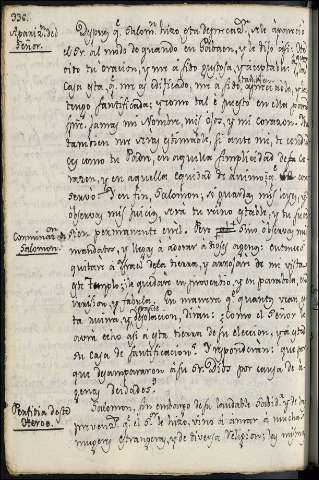 336.
Aparicn. del
Señor.
Despues qe. Salomn. hizo esta deprecacn. se le aparecio
el Sr. al modo de quando en Gabaon, y le dijo asi:
oido tu oracion, y me a sido gustosa, y aceptable:
Casa esta, qe. me as edificado, me a sido apreciada, y la
tengo santificada; y como tal e puesto en ella para
siempre jamas mi Nombre, mis ojos, y mi corazon.
tambien me seras estimable, si ante mi, te condu-
ces como tu Padre, en aquella simplicidad de co-
razon, y en aquella equidad de animo, qe.
servò. Y en fin, Salomon, si guardas mis leyes, y
observas mis juicios, sera tu reino estable, y tu
permanente en el. Pero si no observas mis
mandatos, y llegas à adorar à dioses agenos: entonces
quitare a Israel de la tierra, y arrojare de mi vista
este Templo; i quedara en proverbio, y en parabola,
y fabula. En manera qe. quantos vean
ruina, y desolacion, diran: Como el Señor
avra echo asi à esta tierra de su eleccion, y à esta
su casa de santificacion? Y responderàn: que por-
que desampararon à su Sr. Dios por causa de a-
genas deidades.
Conminacon. à
Salomon.
Perfidia de este
Salomon, sin embargo de su laudable Sabida. y de la
qe. el Sr. le hizo, vino à amar à muchas
mugeres estrangeras, y de diversa religion; las mismas